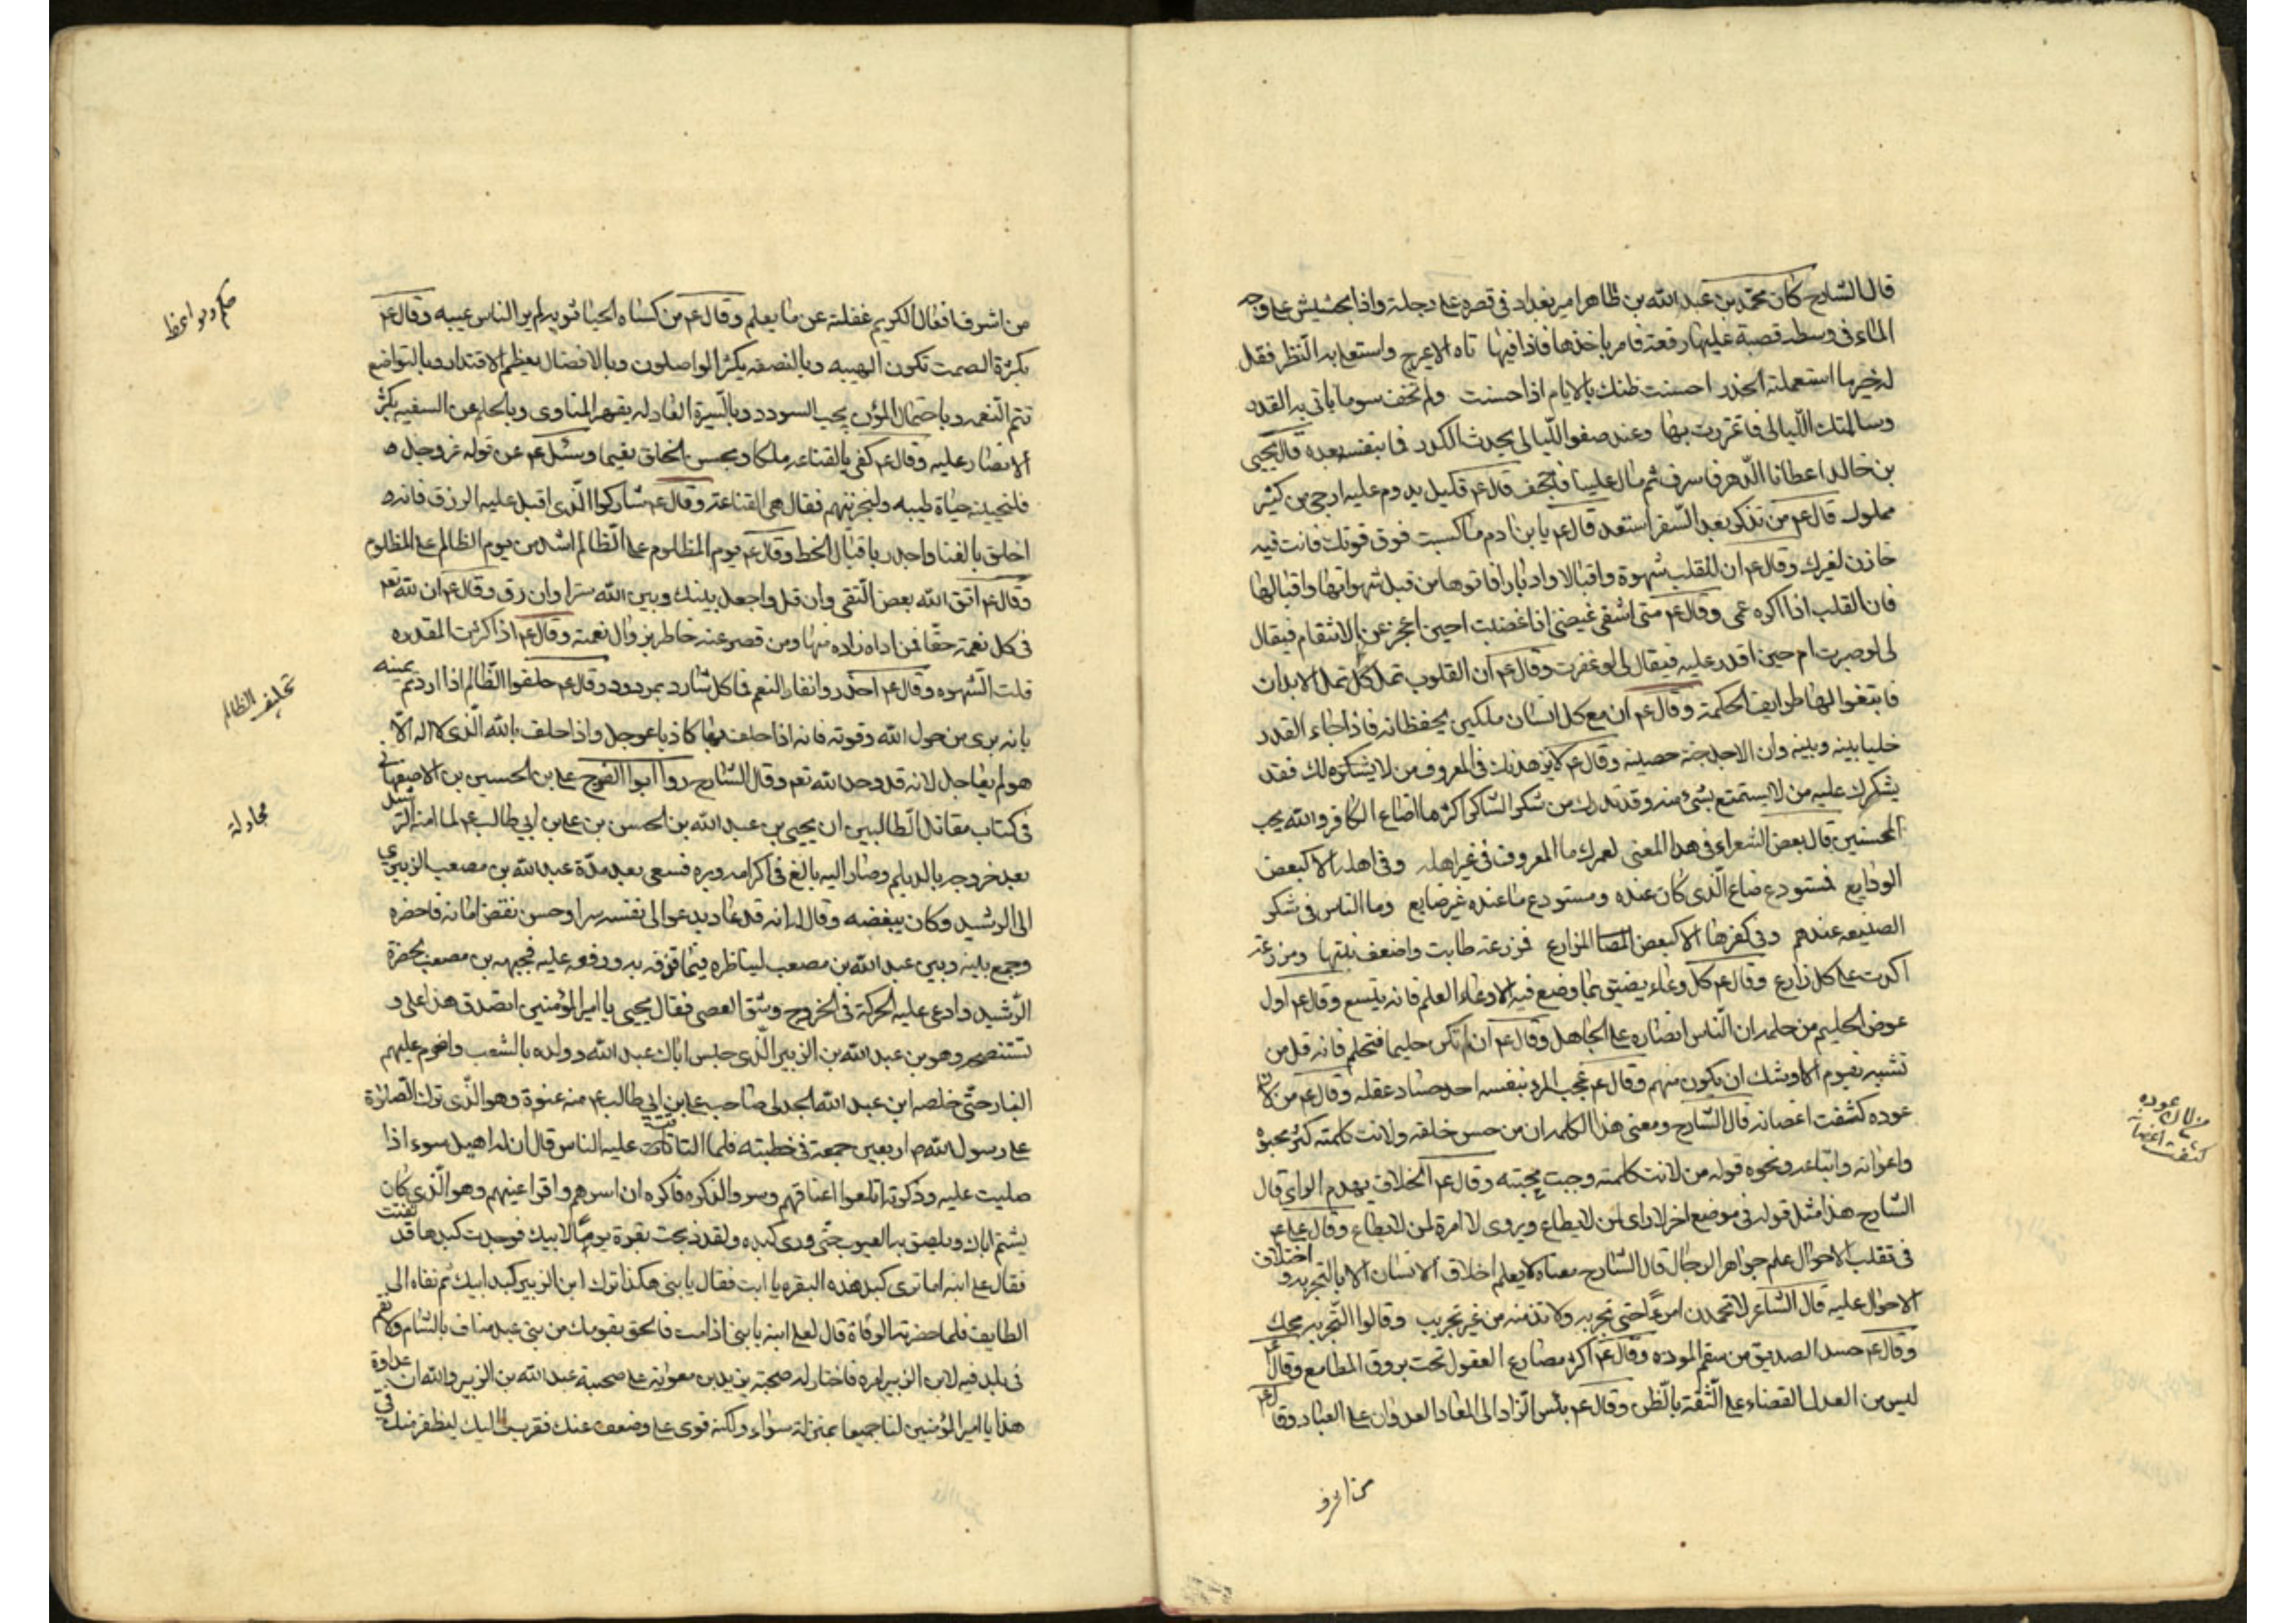 قال الشارح كان محمد بن عبد الله بن طاهر امير بغداد في قصره على دجلة واذا بحشيش على وجه
الماء في وسطه قصبة عليها رقعة فامر باخذها فاذا فيها تاه الاعيرج واستعلى به النظر فقل
له خير ما استعملته الحذر احسنت ظنك بالايام اذا حسنت ولم تخف سوء ما ياتي به القدر
وسالمتك الليالي فاغتررت بها وعند صفو الليالي يحدث الكدر فما انتفع بنفسه بعده قال يحيى
بن خالد اعطانا الدهر فاسرف ثم مال علينا فاجحف قال ع م قليل يدوم عليه ارجى من كثير
مملول قال ع م من تذكر بعد السفر استعد قال ع م يا بن ادم ما كسبت فوق قوتك فانت فيه
خازن لغيرك وقال ع م ان للقلب شهوة واقبالا وادبارا فاتوها من قبل شهواتها واقبالها
فان القلب اذا اكره عمى وقال ع م متى اشفى غيضى اذا غضبت احين اعجز عن الانتقام فيقال
لى لو صبرت ام حين اقدر عليه فيقال لى لو غفرت وقال ع م ان القلوب تمل كل تمل الابدان
فابتغوا لها طرايف الحكمة وقال ع م ان مع كل انسان ملكين يحفظانه فاذا جاء القدر
خليا بينه وبينه وان الاجل جنة حصينة وقال ع م لا يزهدنك في المعروف من لا يشكره لك فقد
يشكرك عليه من لا يستمتع بشئ منه وقد تدرك من شكر الشاكر اكثر مما اضاع الكافر والله يحب
المحسنين قال بعض الشعراء في هذا المعنى لعمرك ما المعروف في غير اهله وفي اهله الا كبعض
الودايع فمستودع ضاع الذى كان عنده ومستودع ما عنده غير ضايع وما الناس في شكر
الصنيعه عندهم وفي كفرها الا كبعض المزارع فمزرعة طابت واضعف نبتها ومزرعة
اكدت على كل زارع وقال ع م كل وعاء يضيق بما وضع فيه الا وعاء العلم فانه يتسع وقال ع م اول
عوض الحليم من حلمه ان الناس انصاره على الجاهل وقال ع م ان لم تكن حليما فتحلم فانه قل من
تشبه بقوم الا اوشك ان يكون منهم وقال ع م عجب المرء بنفسه احد حساد عقله وقال ع م من لان
عوده كثفت اغصانه قال الشارح ومعنى هذا الكلام ان من حسن خلقه ولانت كلمته كثر محبوه
واعوانه واتباعه ونحوه قوله من لانت كلمته وجبت محبته وقال ع م الخلاف يهدم الراى قال
الشارح هذا مثل قوله في موضع اخر لا راى لمن لا يطاع ويروى لا امرة لمن لا يطاع وقال علي ع م
في تقلب الاحوال علم جواهر الرجال قال الشارح معناه لا يعلم اخلاق الانسان الا بالتجربه واختلاف
الاحوال عليه قال الشاعر لا تحمدن امرءا حتى تجربه ولا تذمنه من غير تجريب وقالوا التجربه محك
وقال ع م حسد الصديق من سقم الموده وقال ع م اكثر مصارع العقول تحت بروق المطامع وقال ع م
ليس من العدل القضاء على الثقة بالظن وقال ع م بئس الزاد الى المعاد العدوان على العباد وقال ع م
من اشرف
من لان عوده
كثفت اغصانه
من اشرف افعال الكريم غفلته عن ما يعلم وقال ع م من كساه الحيا ثوبه لم ير الناس عيبه وقال ع م
بكثرة الصمت تكون الهيبه وبالنصفه يكثر الواصلون وبالافضال يعظم الاقتدار وبالتواضع
تتم النعمه وباحتمال المؤن يجب السودد وبالسيرة العادله يقهر المناوى وبالحلم عن السفيه يكثر
الانصار عليه وقال ع م كفى بالقناعه ملكا وبحسن الخلق نعيما وسئل ع م عن قوله عز وجل
فلنحيينه حياة طيبه ولنجزينهم فقال هي القناعة وقال ع م شاركوا الذى اقبل عليه الرزق فانه
اخلق بالغنا واجدر باقبال الحظ وقال ع م يوم المظلوم على الظالم اشد من يوم الظالم على المظلوم
وقال ع م اتق الله بعض التقى وان قل واجعل بينك وبين الله سترا وان رق وقال ع م ان لله تعم
في كل نعمة حقا فمن اداه زاده منها ومن قصر عنه خاطر بزوال نعمته وقال ع م اذا كثرت المقدره
قلت الشهوه وقال ع م احذروا نفار النعم فما كل شارد بمردود وقال ع م حلفوا الظالم اذا اردتم يمينه
بانه برى من حول الله وقوته فانه اذا حلف بها كاذبا عوجل واذا حلف بالله الذى لا اله الا
هو لم يعاجل لانه قد وحد الله تعم وقال الشارح روا ابوا الفرج على بن الحسين بن الاصبهانى
في كتاب مقاتل الطالبيين ان يحيى بن عبد الله بن الحسن بن على بن ابي طالب ع م لما امنه الرشيد
بعد خروجه بالديلم وصار اليه بالغ في اكرامه وبره فسعى بعد مدة عبد الله بن مصعب الزبيرى
الى الرشيد وكان يبغضه وقال له انه قد عاد يدعوا الى نفسه سرا وحسن نقض امانه فاحضره
وجمع بينه وبين عبد الله بن مصعب ليناظره فيما قرفه به ورفعه عليه فجبهه بن مصعب بحضرة
الرشيد وادعى عليه الحركة في الخروج وشق العصى فقال يحيى يا امير المؤمنين اتصدق هذا على و
تستنصحه وهو بن عبد الله بن الزبير الذى حبس اباك عبد الله وولده بالشعب واضرم عليهم
النار حتى خلصه ابن عبد الله الجدلى صاحب على بن ابي طالب ع م منه عنوة وهو الذى ترك الصلوة
على رسول الله ص اربعين جمعة في خطبته فلما التاث عليه الناس قال ان له اهيل سوء اذا
صليت عليه وذكرته اتلعوا اعناقهم وسروا لذكره فاكره ان اسرهم واقر اعينهم وهو الذى كان
يشتم اباك ويلصق به العيوب حتى ورى كبده ولقد ذبحت بقرة يوما لابيك فوجدت كبدها قد نقبت
فقال على ابنه اما ترى كبد هذه البقره يا ابت فقال يا بنى هكذا ترك ابن الزبير كبد ابيك ثم نفاه الى
الطايف فلما حضرته الوفاة قال لعلى ابنه يا بنى اذا مت فالحق بقومك من بنى عبد مناف بالشام ولا تقم
في بلد فيه لابن الزبير امره فاختار له صحبة يزيد بن معوية على صحبة عبد الله بن الزبير والله ان عداوة
هذا يا امير المؤمنين لنا جميعا بمنزلة سواء ولكنه قوى على وضعف عنك فتقرب بى اليك ليظفر منك
حكم ومواعظ
تحليف الظالم
مجادلة